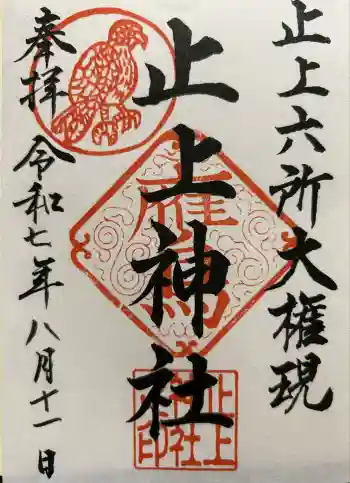 止上六所大権現
止上神社
奉拝
令和七年八月十一日
止上
神社
印